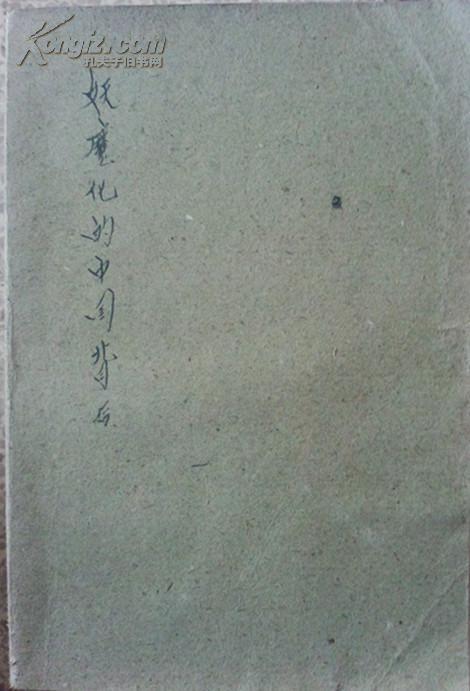 Kongfz.com
孔夫子旧书网
妖魔化的中国背后